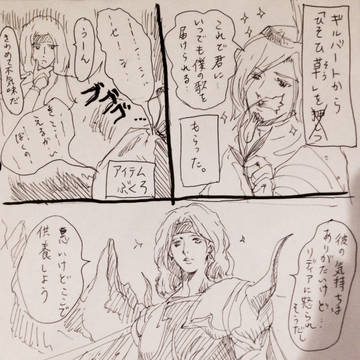 ギルバートから
「ひそひ草」を
そう
もらった。
これで君に
いつでも僕の歌を
届けられる
ブブブ…
アイテム
ぶくろ
ーせ…
ーン…
きーこ…
えるかい
ぼくの…
うん
きわめて不気味だ
彼の気持ちは
ありがたいけど…
リディアに怒られ
そうだし
悪いけどここで
供養しよう